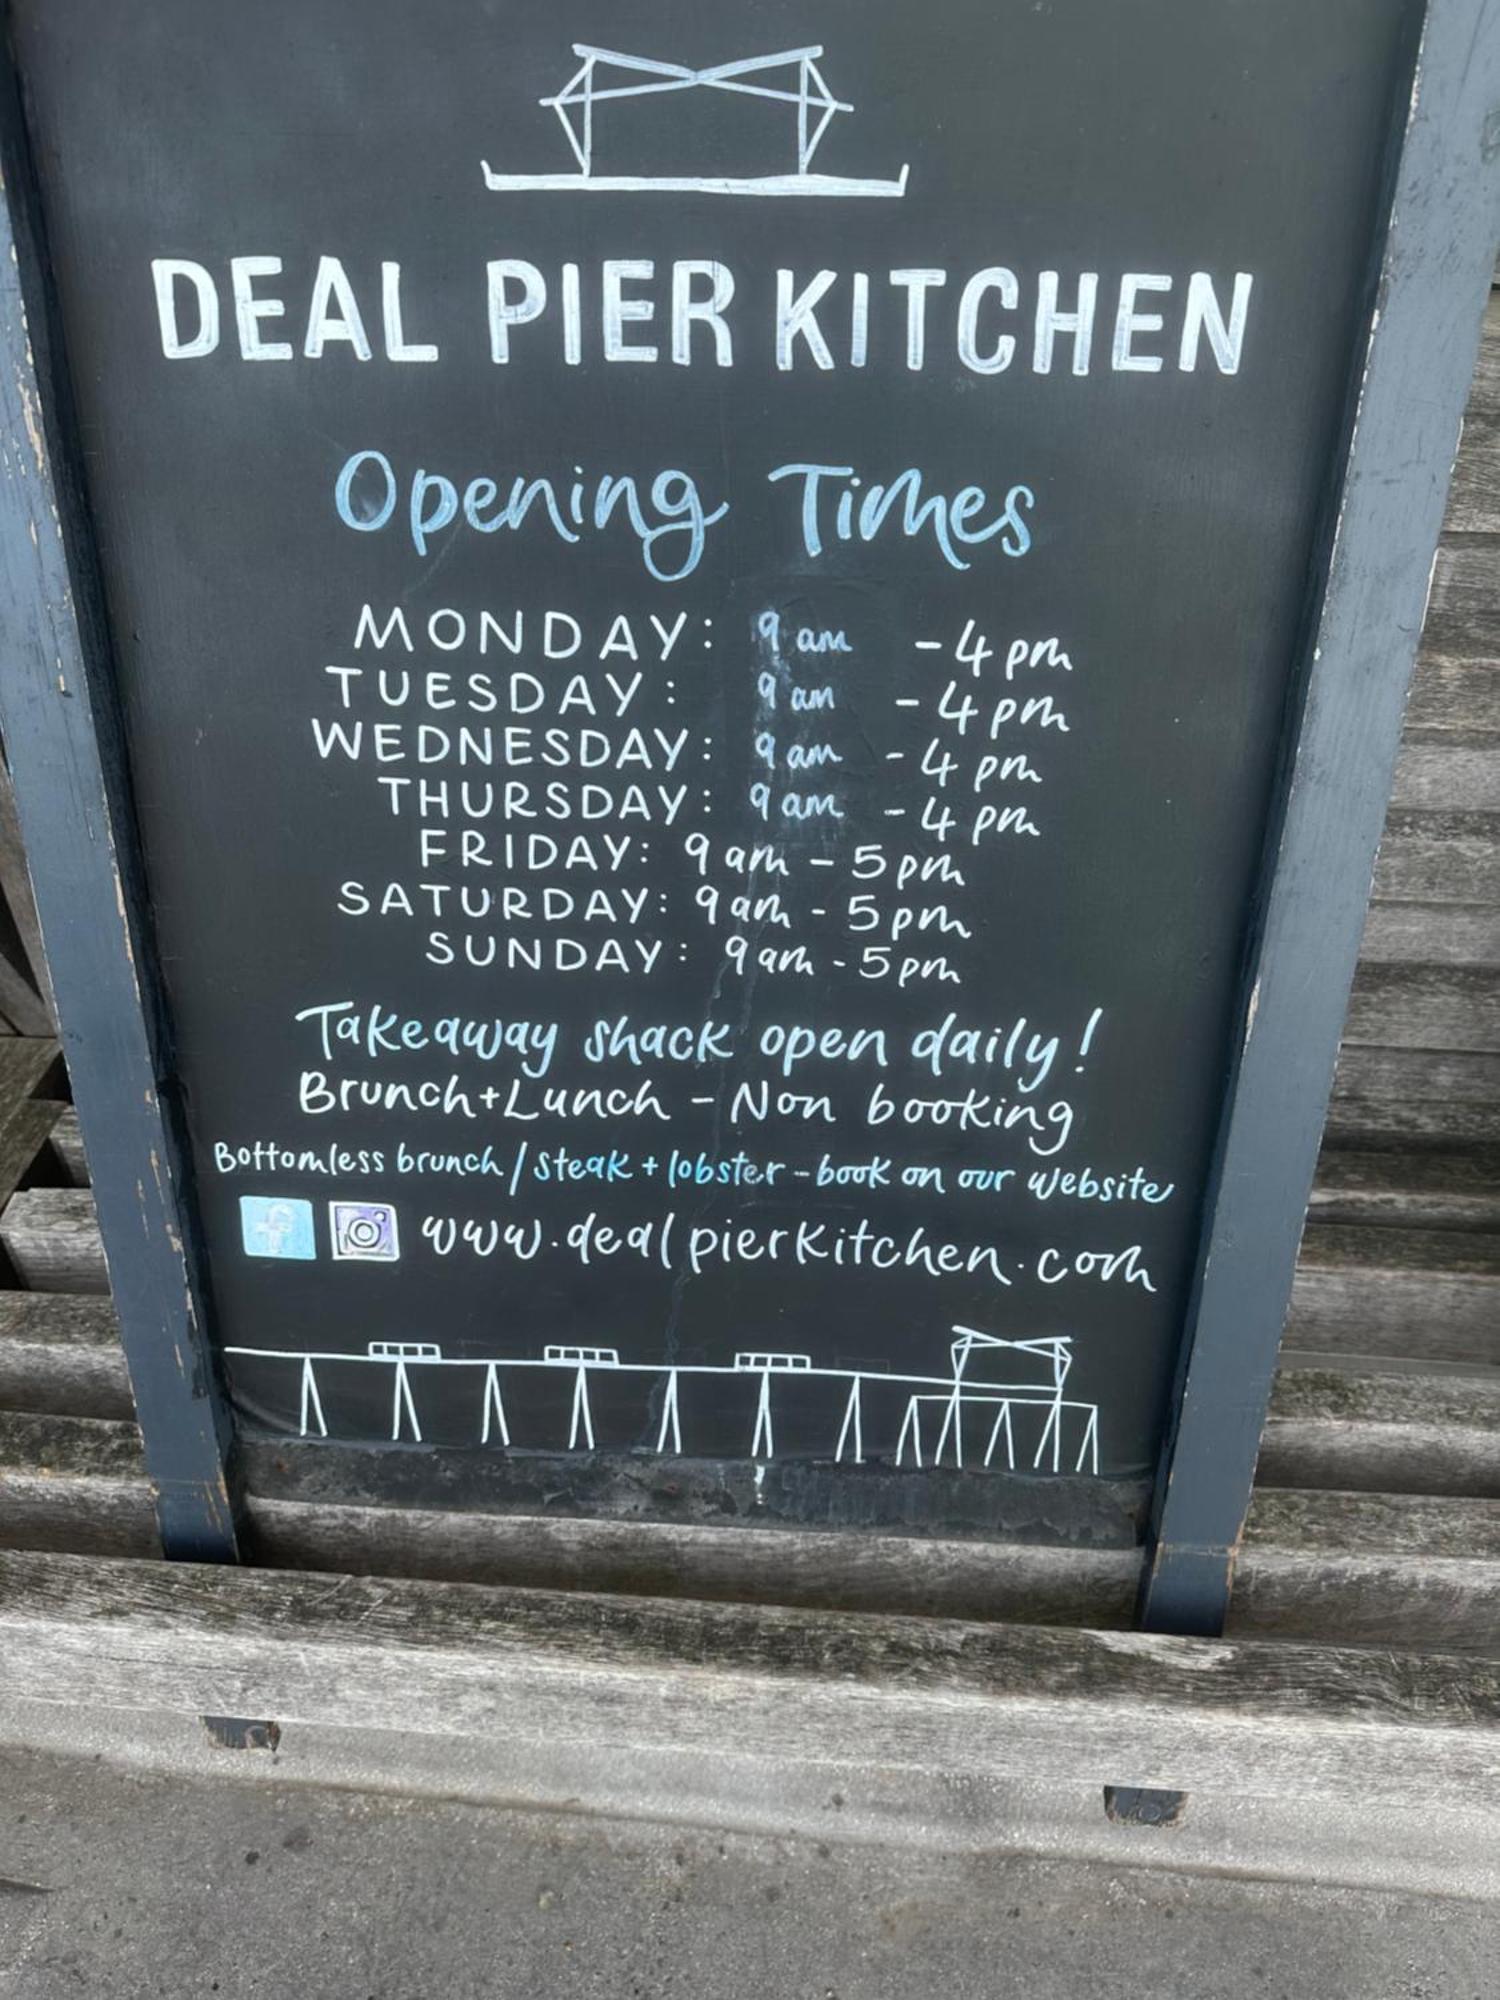 DEAL PIER KITCHEN
Opening Times
MONDAY: 9am - 4pm
TUESDAY: 9am - 4pm
WEDNESDAY: 9am - 4pm
THURSDAY: 9am - 4pm
FRIDAY: 9am - 5pm
SATURDAY: 9am - 5pm
SUNDAY: 9am - 5pm
Takeaway shack open daily!
Brunch + Lunch - Non booking
Bottomless brunch / steak + lobster - book on our website
f www.dealpierkitchen.com